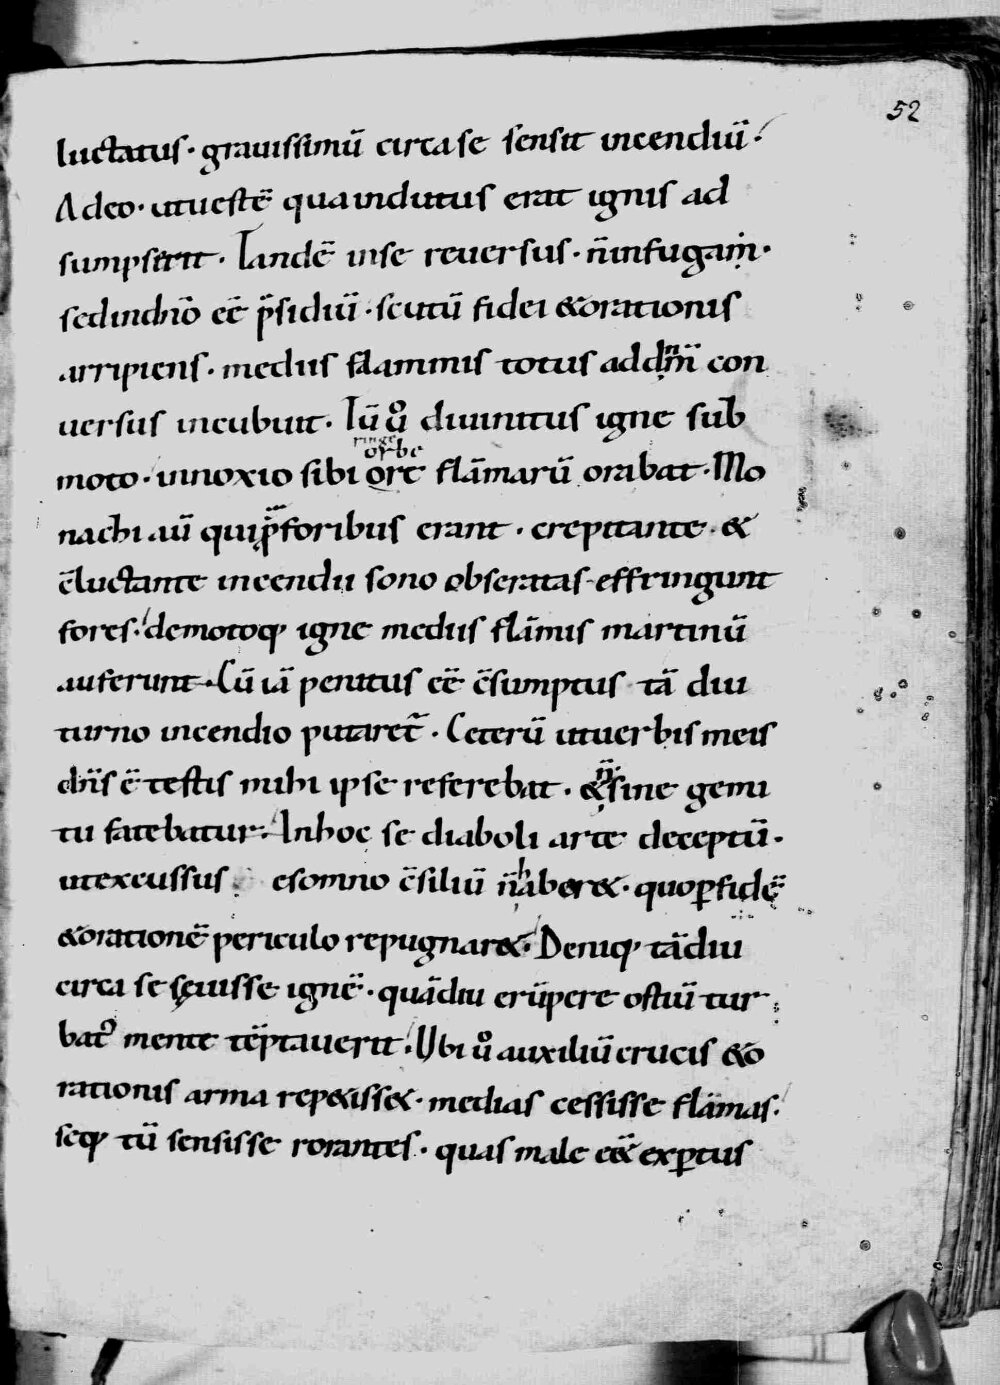 52
luctatus· grauissimū circa se sensit incendiū·
Adeo· ut uestē qua indutus erat ignis ad
sumpserit· Tandē in se reuersus· n̄ in fugaṃ·
sed in dn̄o eē p̄sidiū· scutū fidei & orationis
arripiens· mediis flammis totus ad dn̄m con
uersus incubuit· Tū ů diuinitus igne sub
orbe
moto· innoxio sibi flāmarū orabat· Mo
nachi aū qui p̄ foribus erant· crepitante· &
c̄luctante incendii sono obseratas effringunt
fores· demotoq; igne mediis flāmis martinū
auferunt· Cū iā penitus eē c̄sumptus tā diu
turno incendio putaret̄· Ceterū ut uerbis meis
dn̄s ē testis mihi ipse referebat· & n̄ sine gemi
tu fatebatur· In hoc se diaboli arte deceptū·
ut excussus e somno c̄siliū n̄ haber&· quo ꝑ fidē
& orationē periculo repugnar&· Deniq; tādiu
circa se sęuisse ignē· quādiu erūpere ostiū tur
bat᾽ mente tēptauerit· Ubi ů auxiliū crucis & o
rationis arma rep&iss&· medias cessisse flāmas·
seq; tū sensisse rorantes· quas male eēt exꝑtus